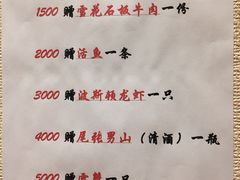 1500 赠雪花石板牛肉一份
2000 赠活鱼一条
3000 赠波斯顿龙虾一只
4000 赠尾张男山（清酒）一瓶
5000 赠雪蟹一只